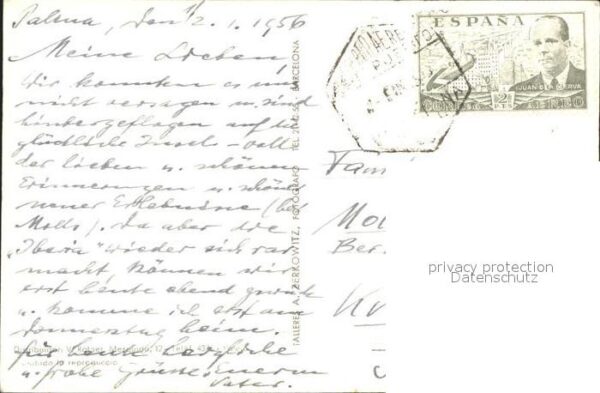 Palma, den 2.1.1956
Meine Lieben,
Wir konnten es uns
nicht versagen u. sind
hinübergeflogen auf die
glückliche Insel – voll
der lieben u. schönen
Erinnerungen u. schöner
neuer Erlebnisse (bei
Molls). Da aber die
„Iberia“ wieder sich rar
macht, können wir
erst heute abend zurück
u. komme ich erst am
Donnerstag heim.
für heute herzliche
u. frohe Grüsse Euerm
Vater.
TALLERES A. ZERKOWITZ, FOTOGRAFO BARCELONA
ESPAÑA
JUAN DE LA CIERVA
CORREO AEREO
2 PTS
Fam
Mo
Ber.
privacy protection
Datenschutz